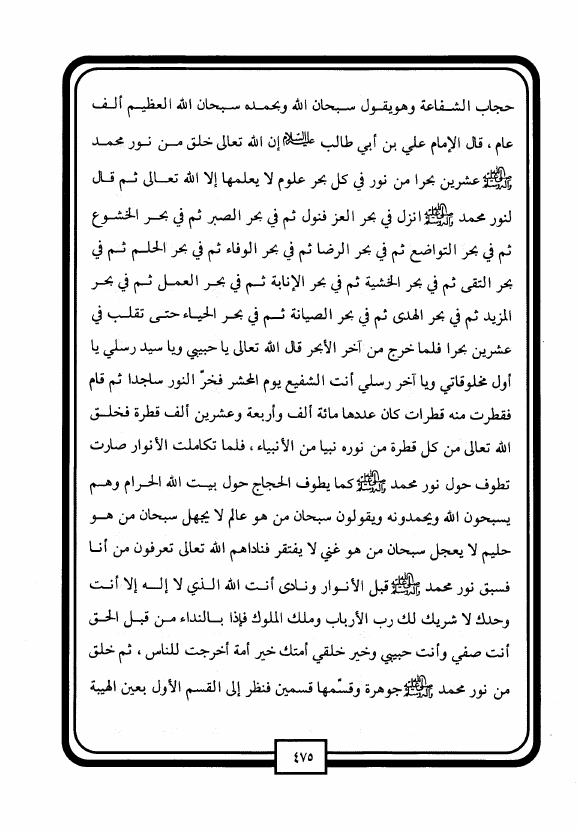 حجاب الشفاعة وهويقول سبحان الله وبحمده سبحان الله العظيم ألف
عام ، قال الإمام علي بن أبي طالب عليه السلام إن الله تعالى خلق من نور محمد
صلى الله عليه وآله وسلم عشرين بحرا من نور في كل بحر علوم لا يعلمها إلا الله تعالى ثم قال
لنور محمد صلى الله عليه وآله وسلم انزل في بحر العز فنول ثم في بحر الصبر ثم في بحر الخشوع
ثم في بحر التواضع ثم في بحر الرضا ثم في بحر الوفاء ثم في بحر الحلم ثم في
بحر التقى ثم في بحر الخشية ثم في بحر الإنابة ثم في بحر العمل ثم في بحر
المزيد ثم في بحر الهدى ثم في بحر الصيانة ثم في بحر الحياء حتى تقلب في
عشرين بحرا فلما خرج من آخر الأبحر قال الله تعالى يا حبيبي ويا سيد رسلي يا
أول مخلوقاتي ويا آخر رسلي أنت الشفيع يوم المحشر فخرّ النور ساجدا ثم قام
فقطرت منه قطرات كان عددها مائة ألف وأربعة وعشرين ألف قطرة فخلق
الله تعالى من كل قطرة من نوره نبيا من الأنبياء ، فلما تكاملت الأنوار صارت
تطوف حول نور محمد صلى الله عليه وآله وسلم كما يطوف الحجاج حول بيت الله الحرام وهم
يسبحون الله ويحمدونه ويقولون سبحان من هو عالم لا يجهل سبحان من هو
حليم لا يعجل سبحان من هو غني لا يفتقر فناداهم الله تعالى تعرفون من أنا
فسبق نور محمد صلى الله عليه وآله وسلم قبل الأنوار ونادى أنت الله الذي لا إله إلا أنت
وحدك لا شريك لك رب الأرباب وملك الملوك فإذا بالنداء من قبل الحق
أنت صفي وأنت حبيبي وخير خلقي أمتك خير أمة أخرجت للناس ، ثم خلق
من نور محمد صلى الله عليه وآله وسلم جوهرة وقسّمها قسمين فنظر إلى القسم الأول بعين الهيبة
٤٧٥